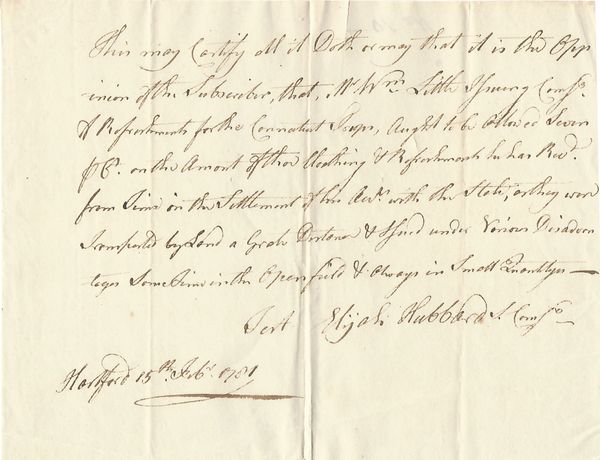 This may Certify all it Doth or may that it is the Opp
inion of the Subscriber, that, Mr. Wm. Little Issuing Comsy.
of Refreshments for the Connecticut Troops, Aught to be allowed Seven
pr Ct. on the Amont of the Cloathing & Refreshments he has Recd.
from Time in the Settlement of his Acts. with the State, as they were
Transported by Land a Grate Distance & Issued under Various Disadvan
tages Some Time in the Open field & Always in Small Quantitys
Test Elijah Hubbard Comsy
Hartford 15th Feby. 1781